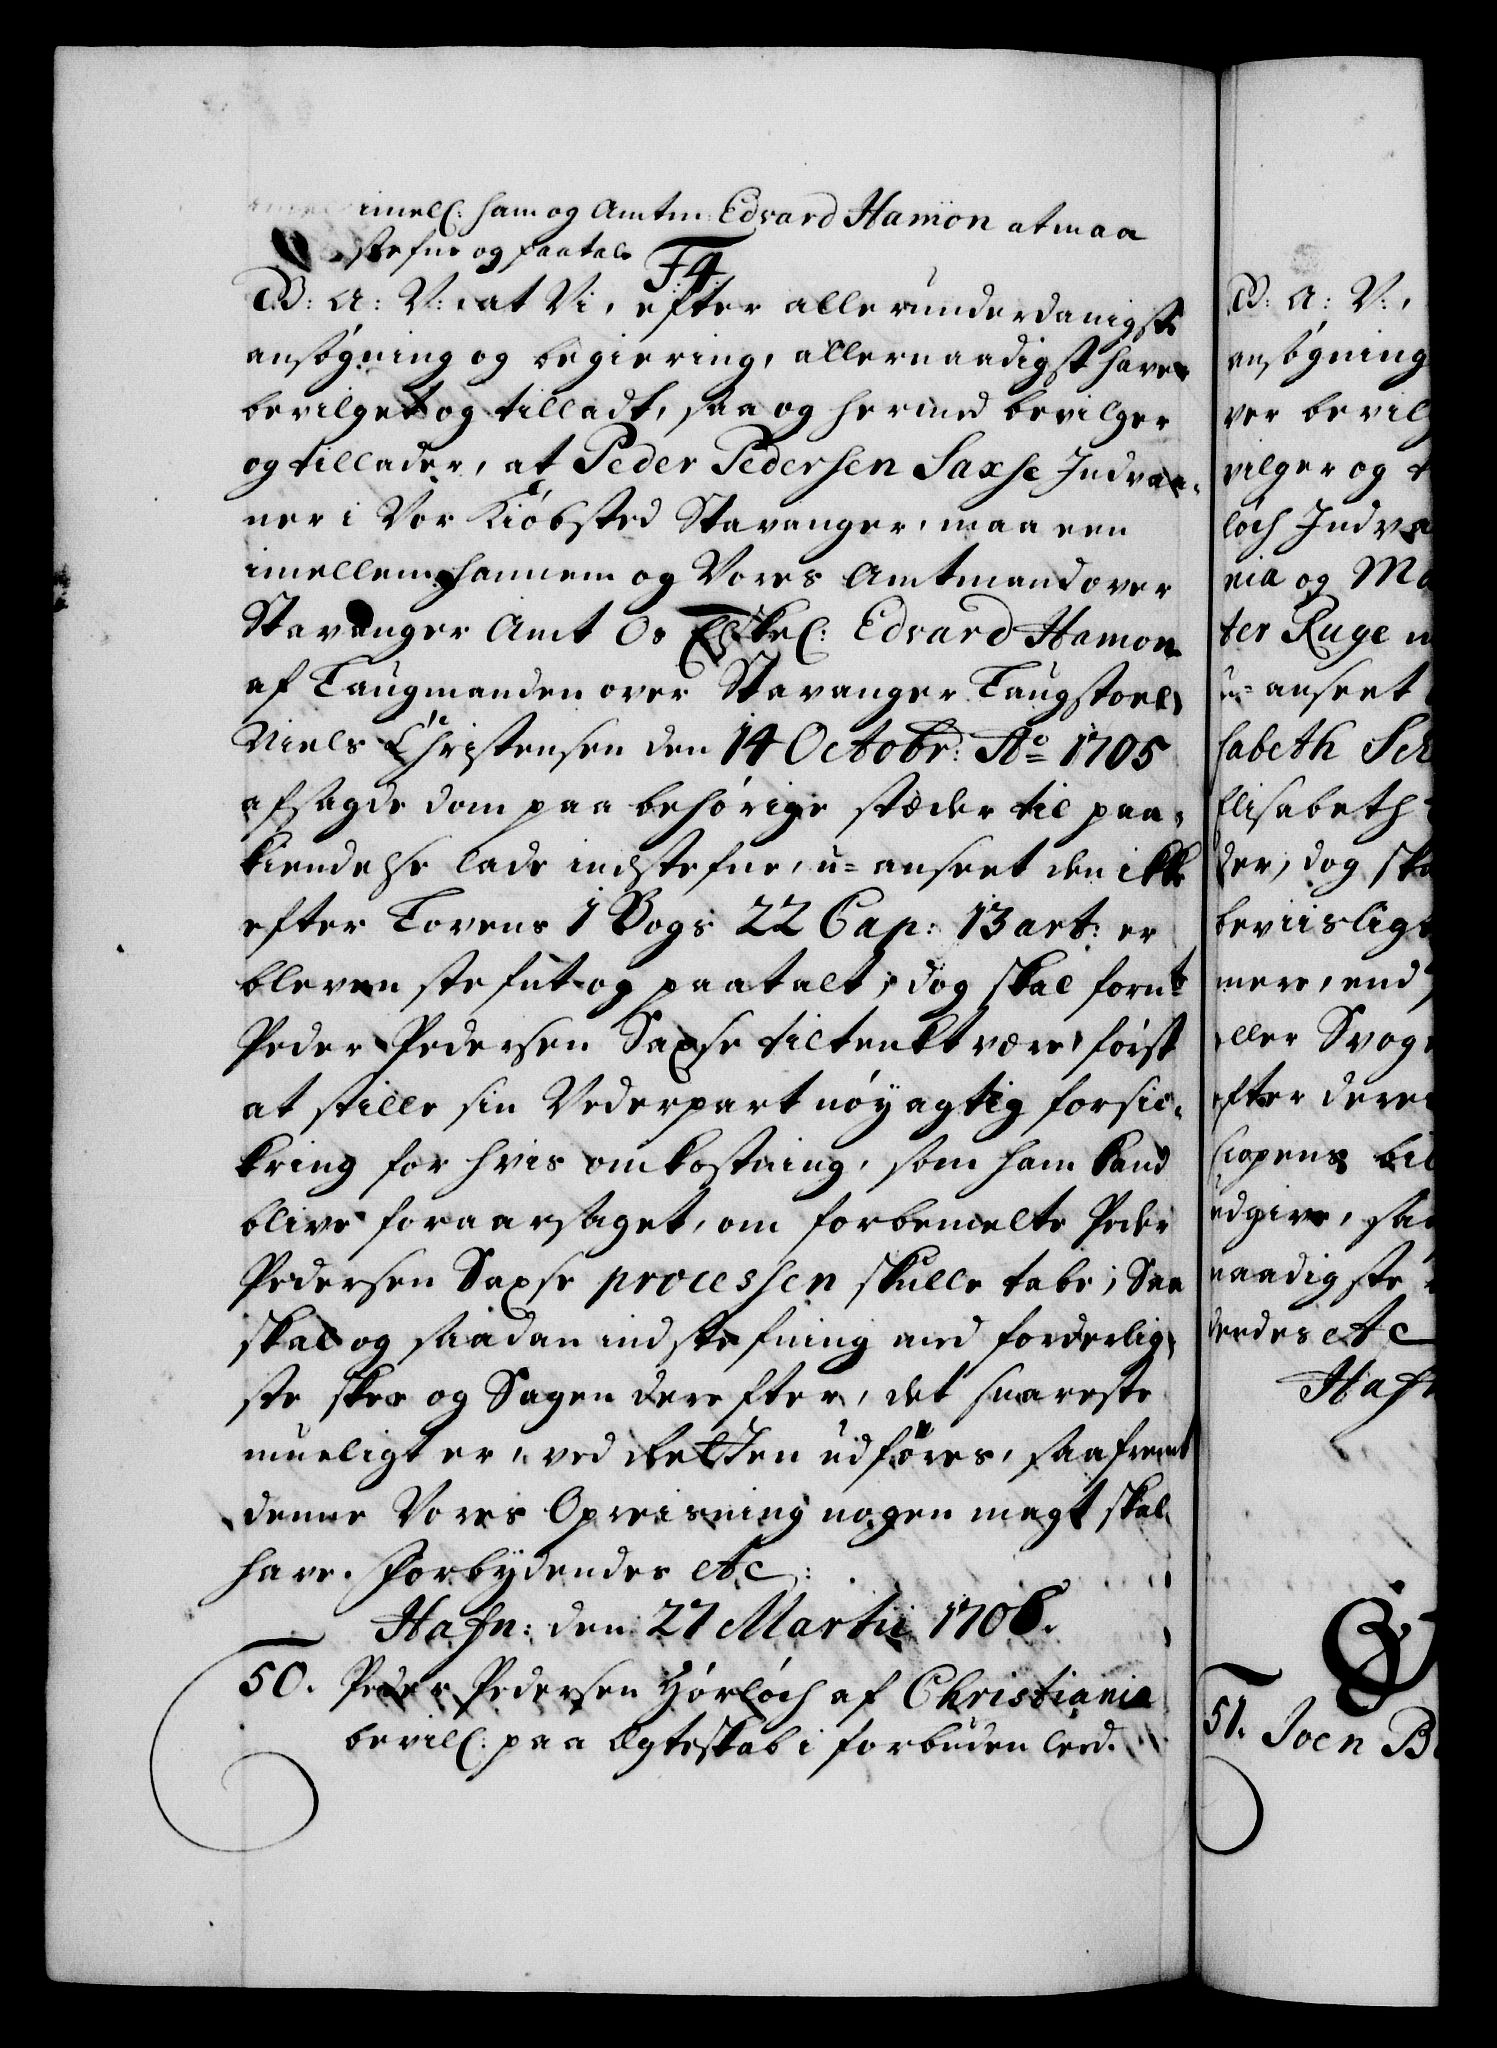 imell: ham og Amtm: Edvard Hamon at maa
stefne og paatale
F4.
G: A: V: at Vi, efter allerunderdanigste
ansøgning og begiering, allernaadigst haver
bevilget og tilladt, saa og hermed bevilger
og tillader, at Peder Pedersen Saxse Indvaa-
ner i Vor Kiøbsted Stavanger, maa een
imellem hannem og Vores Amtmand over
Stavanger Amt Os Elskel: Edvard Hamon
af Laugmanden over Stavanger Laugstoel
Niels Christensen den 14 Octobr: Ao 1705
afsagde dom paa behørige stæder til paa-
kiendelse lade indstefne, u-anseet den ikke
efter Lovens 1 Bogs 22 Cap: 13 art: er
bleven stefnt og paatalt; dog skal fornte
Peder Pedersen Saxse tiltenkt være, først
at stille sin Vederpart nøyagtig forsic-
kring for hvis omkostning, som ham kand
blive foraarsaget, om forbemelte Peder
Pedersen Saxse processen skulle tabe; Saa
skal og saadan indstefning med forderlig-
ste skee og Sagen derefter, det snareste
mueligt er, ved Retten udføres, saafremt
denne Vores Opreisning nogen magt skal
have. Forbydendes etc:
Hafn: den 27 Martii 1706.
50. Peder Pedersen Hørløch af Christiania
bevill: paa Ægteskab i forbuden leed.
G: A: V:,
ansøgning
ver bevil
vilger og t
løch Indva
nia og Ma
ter Ruge
u-anseet
sabeth Sch
Elisabeth
der, dog ska
beviisligt
mere, end
eller Svog
efter deres
udgive, saa
naadigste
dendes etc
Hafn
51. Joen B